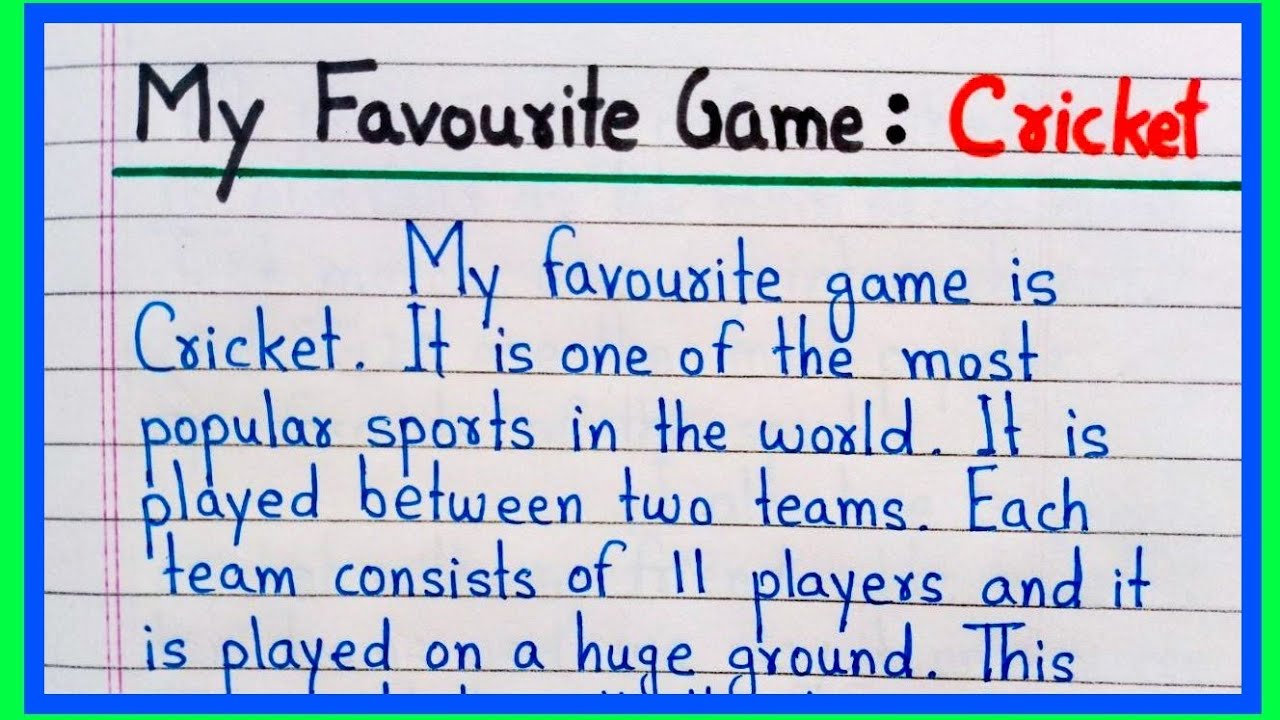 My Favourite Game: Cricket
My favourite game is
Cricket. It is one of the most
popular sports in the world. It is
played between two teams. Each
team consists of 11 players and it
is played on a huge ground. This